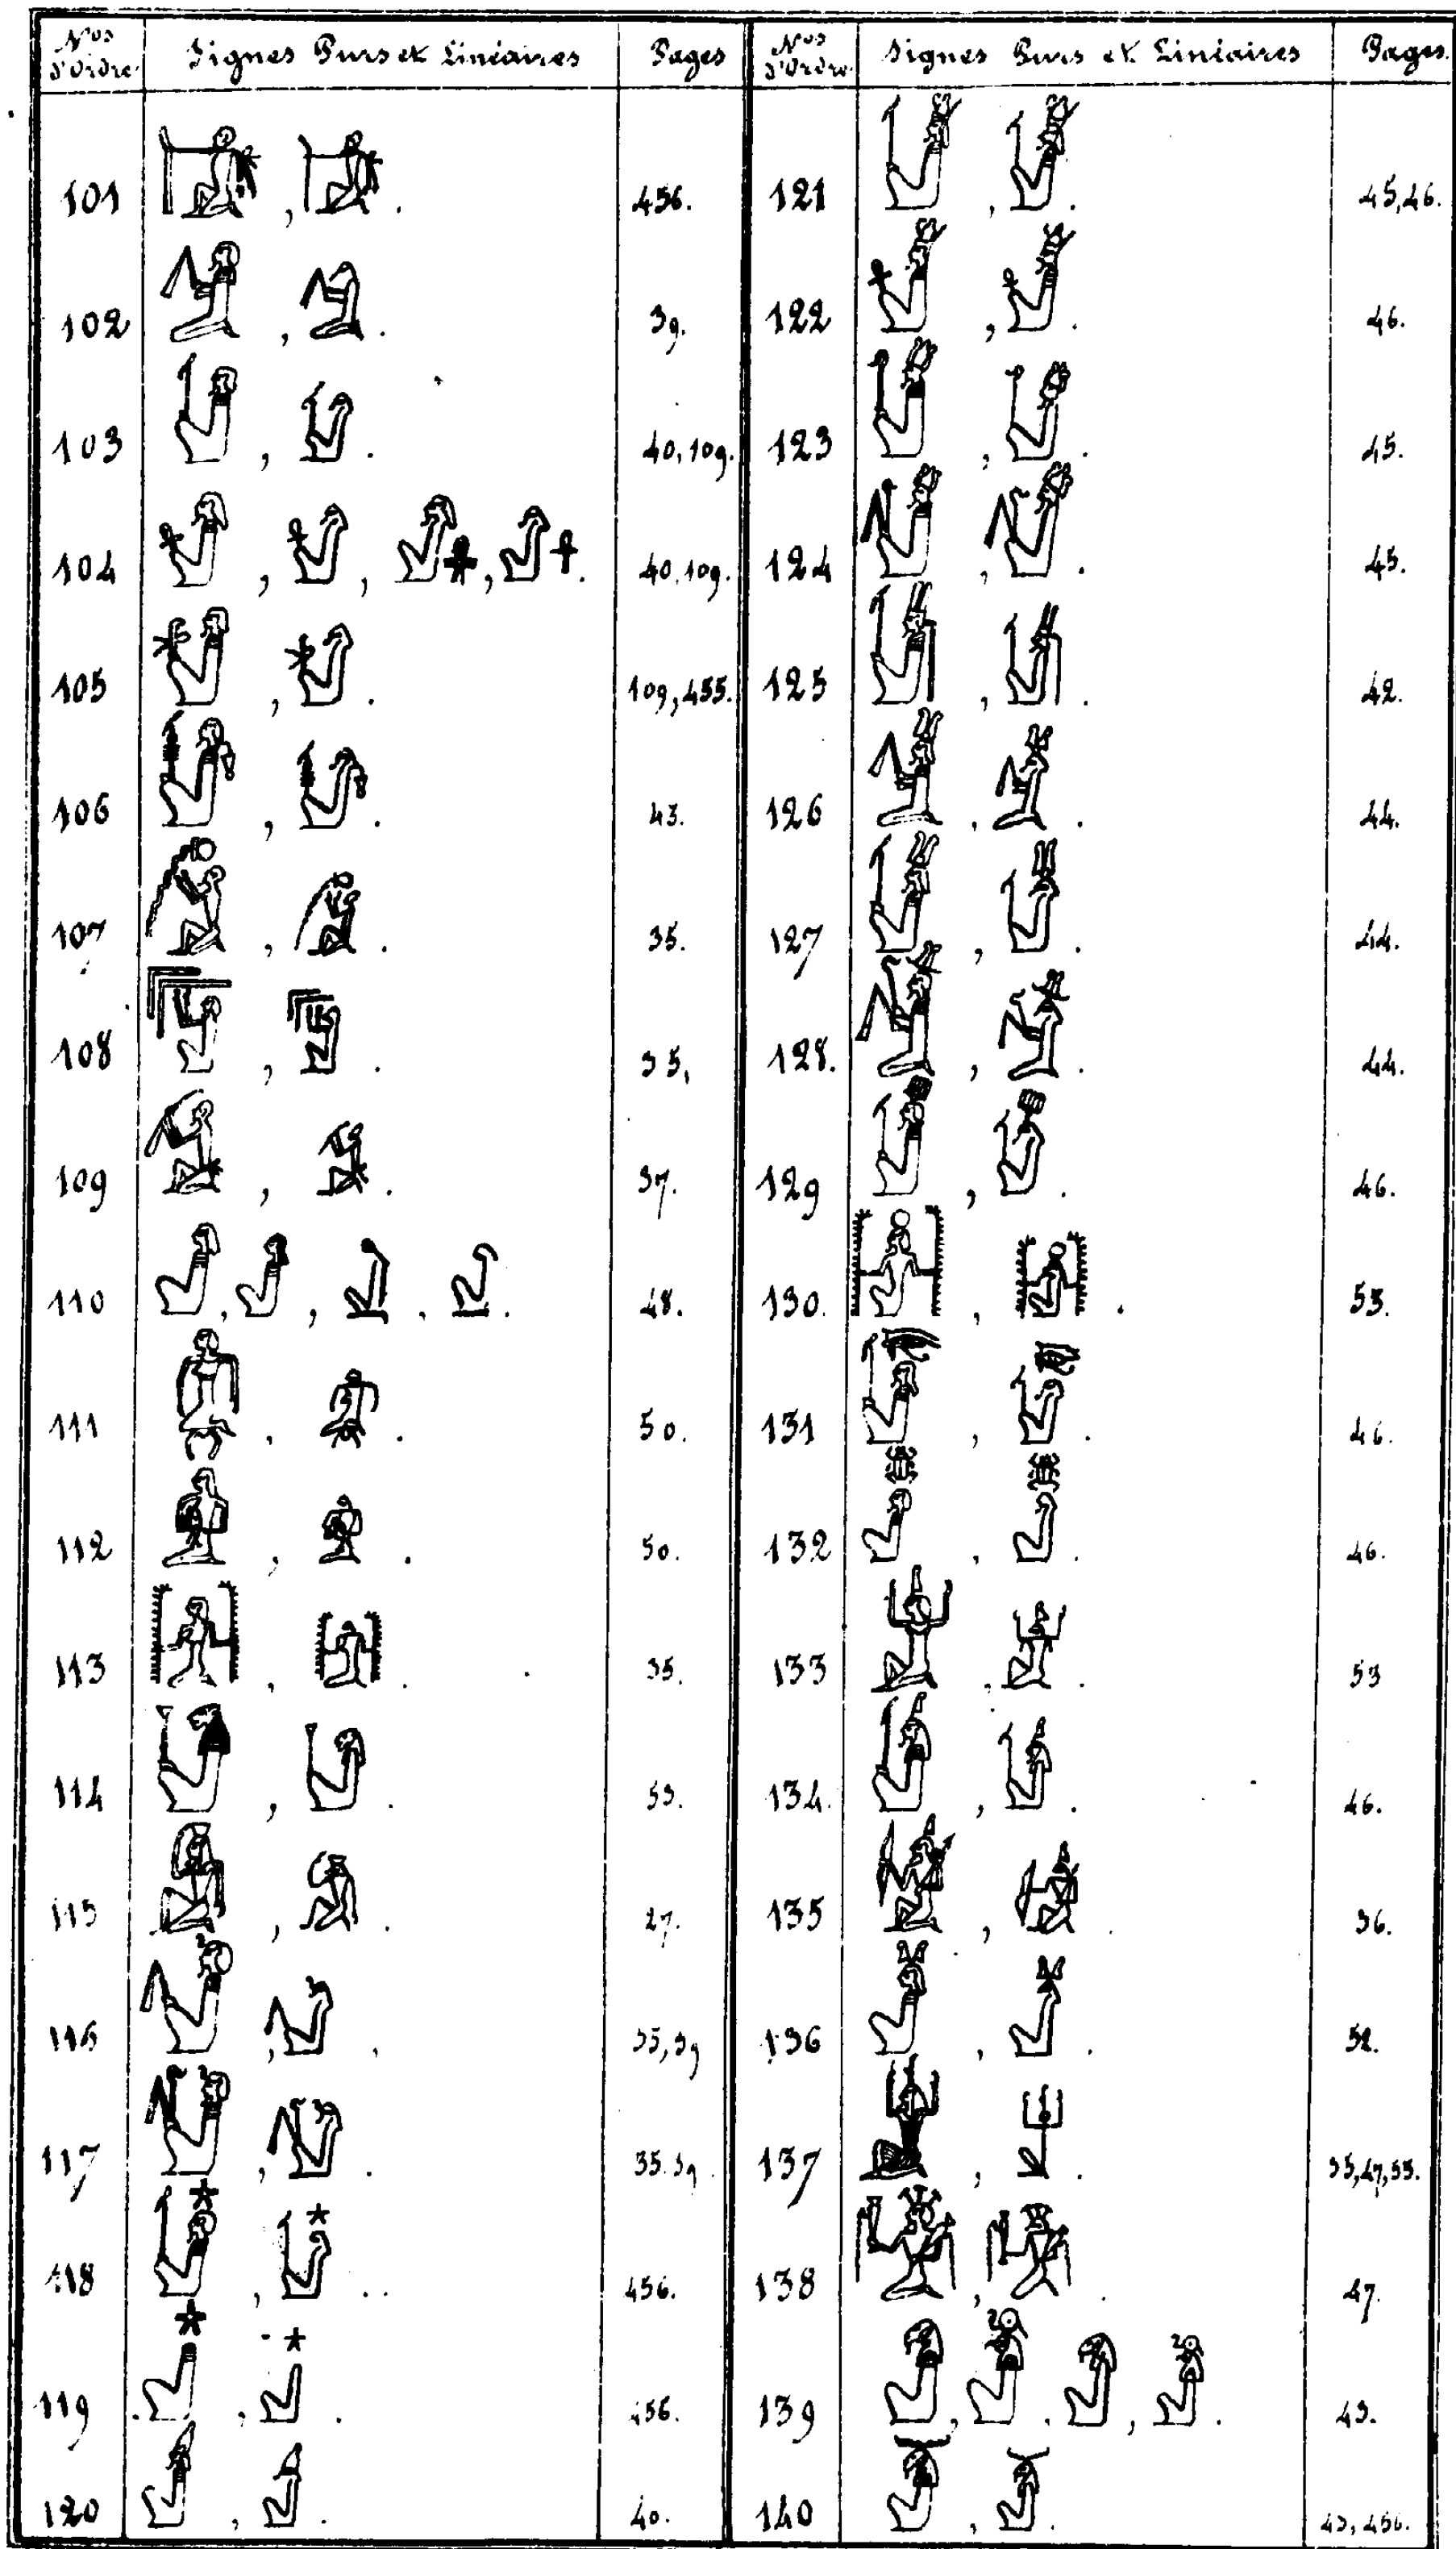 Nos d'Ordre Signes Purs et Linéaires Pages
101 , . 456.
102 , . 39.
103 , . 40,109.
104 , , , . 40,109.
105 , . 109,455.
106 , . 43.
107 , . 35.
108 , . 35,
109 , . 37.
110 , , , . 48.
111 , . 50.
112 , . 50.
113 , . 35.
114 , . 53.
115 , . 27.
116 , . 35,39
117 , . 35.39
118 , . 456.
119 , . 456.
120 , . 40.
Nos d'Ordre Signes Purs et Linéaires Pages.
121 , . 45,46.
122 , . 46.
123 , . 45.
124 , . 45.
125 , . 42.
126 , . 44.
127 , . 44.
128. , . 44.
129 , . 46.
130. , . 53.
131 , . 46.
132 , . 46.
133 , . 53
134. , . 46.
135 , . 36.
136 , . 52.
137 , . 35,47,53.
138 , . 47.
139 , , , . 43.
140 , . 43, 456.